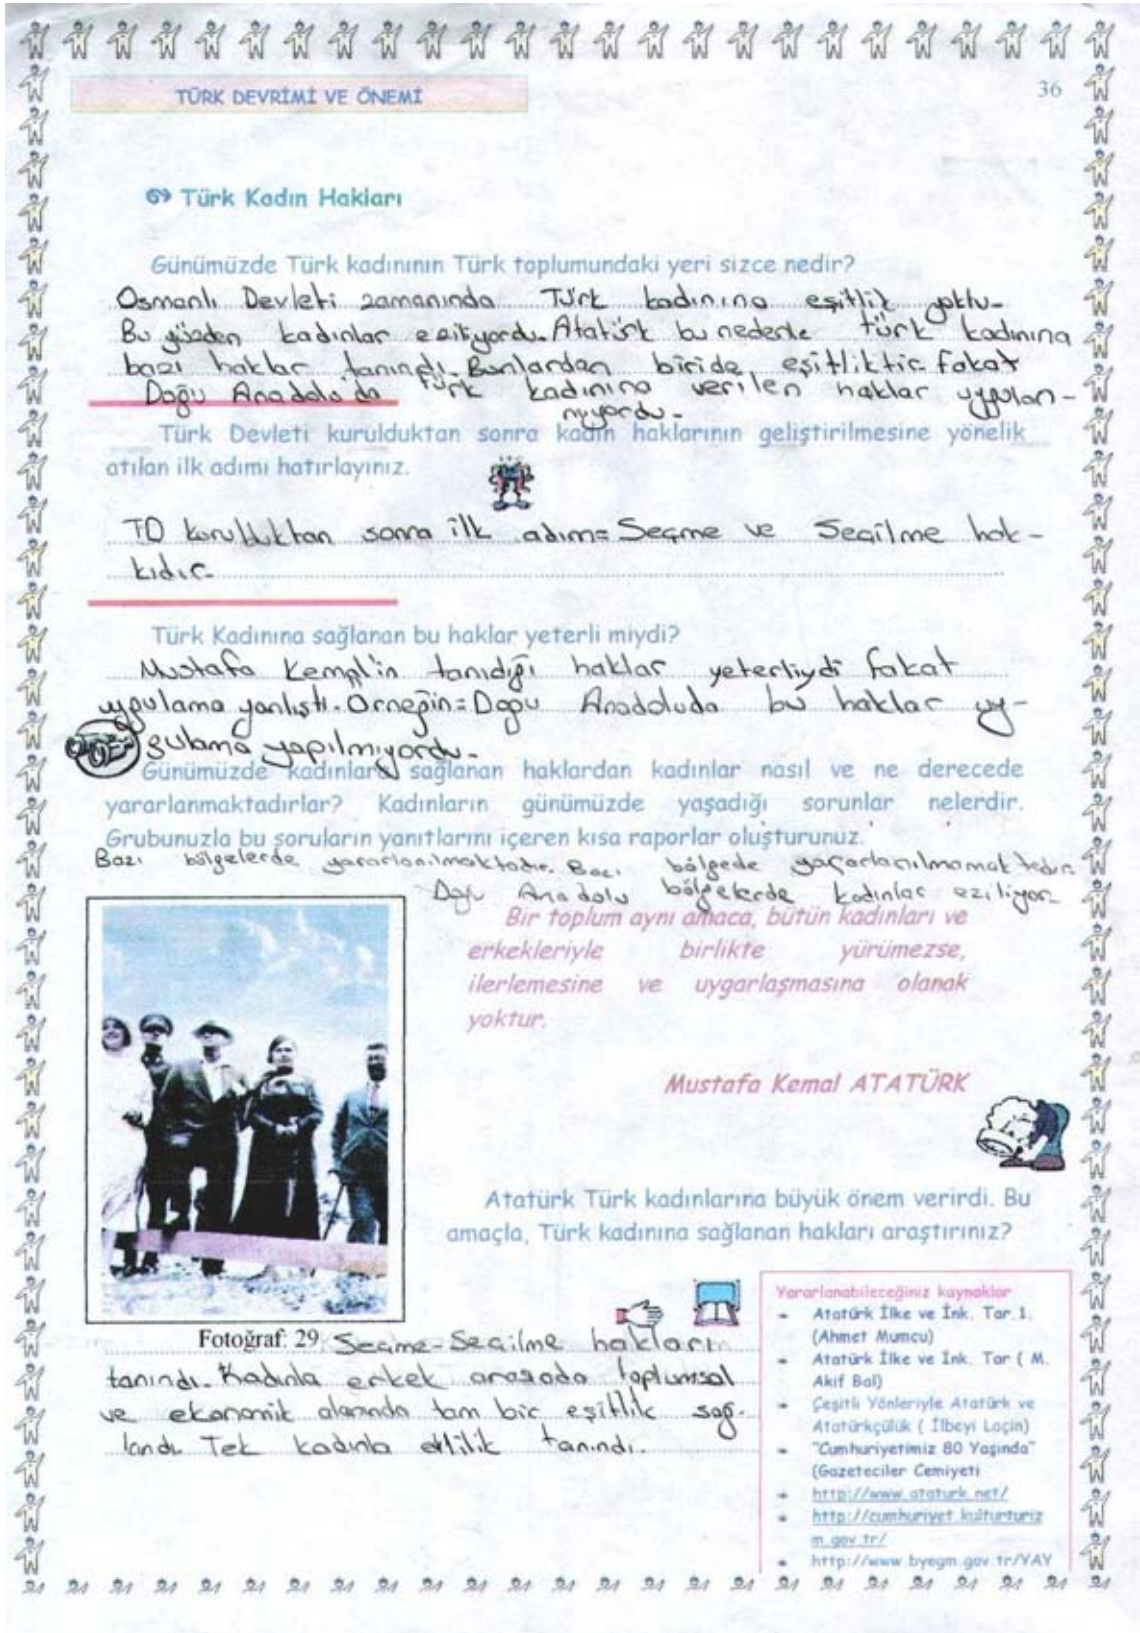 TÜRK DEVRİMİ VE ÖNEMİ
36
Türk Kadın Hakları
Günümüzde Türk kadınının Türk toplumundaki yeri sizce nedir?
Osmanlı Devleti zamanında Türk kadınına eşitlik yoktu.
Bu yüzden kadınlar eziliyordu. Atatürk bu nedenle türk kadınına
bazı haklar tanındı. Bunlardan biride eşitliktir. fakat
Doğu Anadolu'da türk kadınına verilen haklar uygulan-
mıyordu.
Türk Devleti kurulduktan sonra kadın haklarının geliştirilmesine yönelik
atılan ilk adımı hatırlayınız.
TD kurulduktan sonra ilk adım= Seçme ve Seçilme hak-
kıdır.
Türk Kadınına sağlanan bu haklar yeterli miydi?
Mustafa Kemal'in tanıdığı haklar yeterliydi fakat
uygulama yanlıştı. Örneğin= Doğu Anadoluda bu haklar uy-
gulama yapılmıyordu.
Günümüzde kadınlara sağlanan haklardan kadınlar nasıl ve ne derecede
yararlanmaktadırlar? Kadınların günümüzde yaşadığı sorunlar nelerdir.
Grubunuzla bu soruların yanıtlarını içeren kısa raporlar oluşturunuz.
Bazı bölgelerde yararlanılmaktadır. Bazı bölgede yararlanılmamaktadır.
Doğu Anadolu bölgelerde kadınlar eziliyor.
Bir toplum aynı amaca, bütün kadınları ve
erkekleriyle birlikte yürümezse,
ilerlemesine ve uygarlaşmasına olanak
yoktur.
Mustafa Kemal ATATÜRK
Atatürk Türk kadınlarına büyük önem verirdi. Bu
amaçla, Türk kadınına sağlanan hakları araştırınız?
Fotoğraf: 29
Seçme-Seçilme hakları
tanındı. Kadınla erkek arasada toplumsal
ve ekonomik alanında tam bir eşitlik sağ-
landı. Tek kadınla evlilik tanındı.
Yararlanabileceğiniz kaynaklar
Atatürk İlke ve İnk. Tar.1.
(Ahmet Mumcu)
Atatürk İlke ve İnk. Tar ( M.
Akif Bal)
Çeşitli Yönleriyle Atatürk ve
Atatürkçülük ( İlbeyi Laçin)
"Cumhuriyetimiz 80 Yaşında"
(Gazeteciler Cemiyeti
http://www.ataturk.net/
http://cumhuriyet.kulturturiz
m.gov.tr/
http://www.byegm.gov.tr/YAY